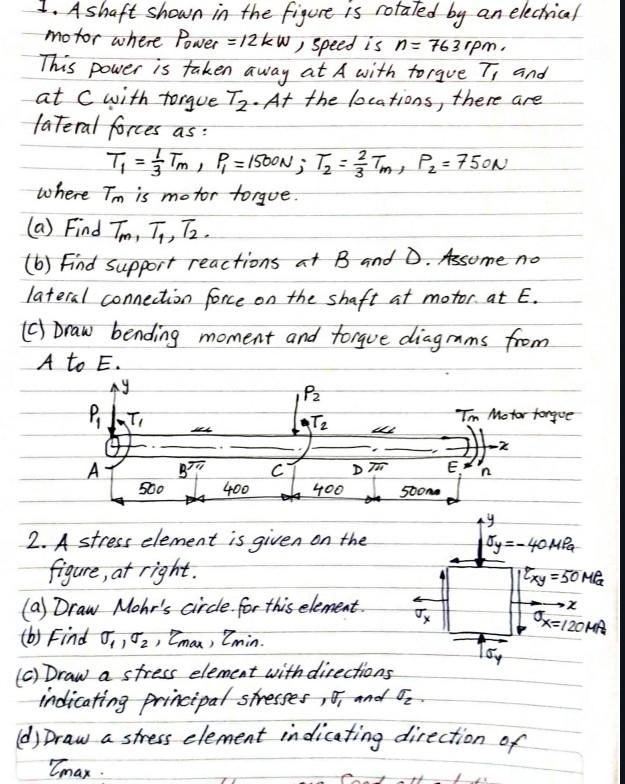 1. A shaft shown in the figure is rotated by an electrical
motor where Power = 12 kW, speed is n = 763 rpm.
This power is taken away at A with torque T₁ and
at C with torque T₂. At the locations, there are
lateral forces as:
T₁ = 1/3 Tm, P₁ = 1500N; T₂ = 2/3 Tm, P₂ = 750N
where Tm is motor torque.
(a) Find Tm, T₁, T₂.
(b) Find support reactions at B and D. Assume no
lateral connection force on the shaft at motor at E.
(c) Draw bending moment and torque diagrams from
A to E.
y
P₂
P₁ T₁ T₂ Tm Motor torque
x
A B C D E n
500 400 400 500mm
2. A stress element is given on the
figure, at right.
(a) Draw Mohr's circle for this element.
(b) Find σ₁, σ₂, τmax, τmin.
(c) Draw a stress element with directions
indicating principal stresses, σ₁ and σ₂.
(d) Draw a stress element indicating direction of
τmax.
y
σy = -40 MPa
τxy = 50 MPa
x
σx σx = 120 MPa
σy